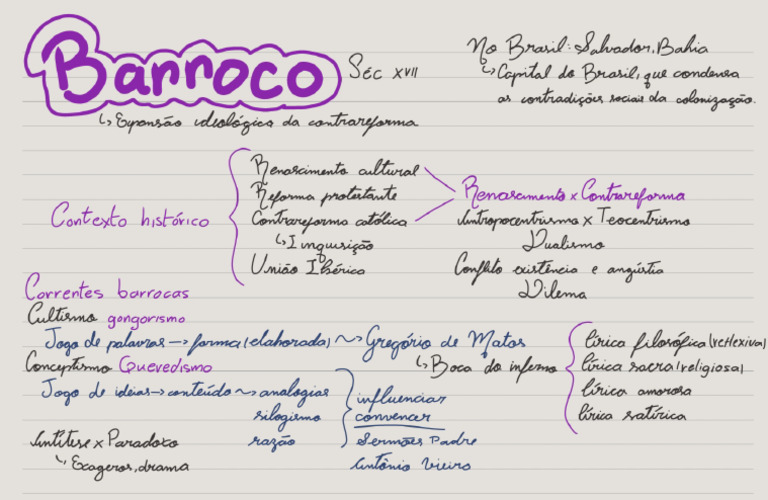 Barroco Séc XVII
↳ Expansão ideológica da contrareforma
No Brasil: Salvador, Bahia
↳ Capital do Brasil, que condensa
as contradições sociais da colonização.
Contexto histórico
Renascimento cultural
Reforma protestante
Contrareforma católica
↳ Inquisição
União Ibérica
Renascimento x Contrareforma
Antropocentrismo x Teocentrismo
Dualismo
Conflito existência e angústia
Dilema
Correntes barrocas
Cultismo gongorismo
Jogo de palavras → forma (elaborada) ~> Gregório de Matos
↳ Boca do inferno
lírica filosófica (reflexiva)
lírica sacra (religiosa)
lírica amorosa
lírica satírica
Conceptismo Quevedismo
Jogo de ideias → conteúdo ~> analogias
silogismo
razão
influenciar
convencer
Sermões Padre
Antônio Vieira
Antítese x Paradoxo
↳ Exageros, drama